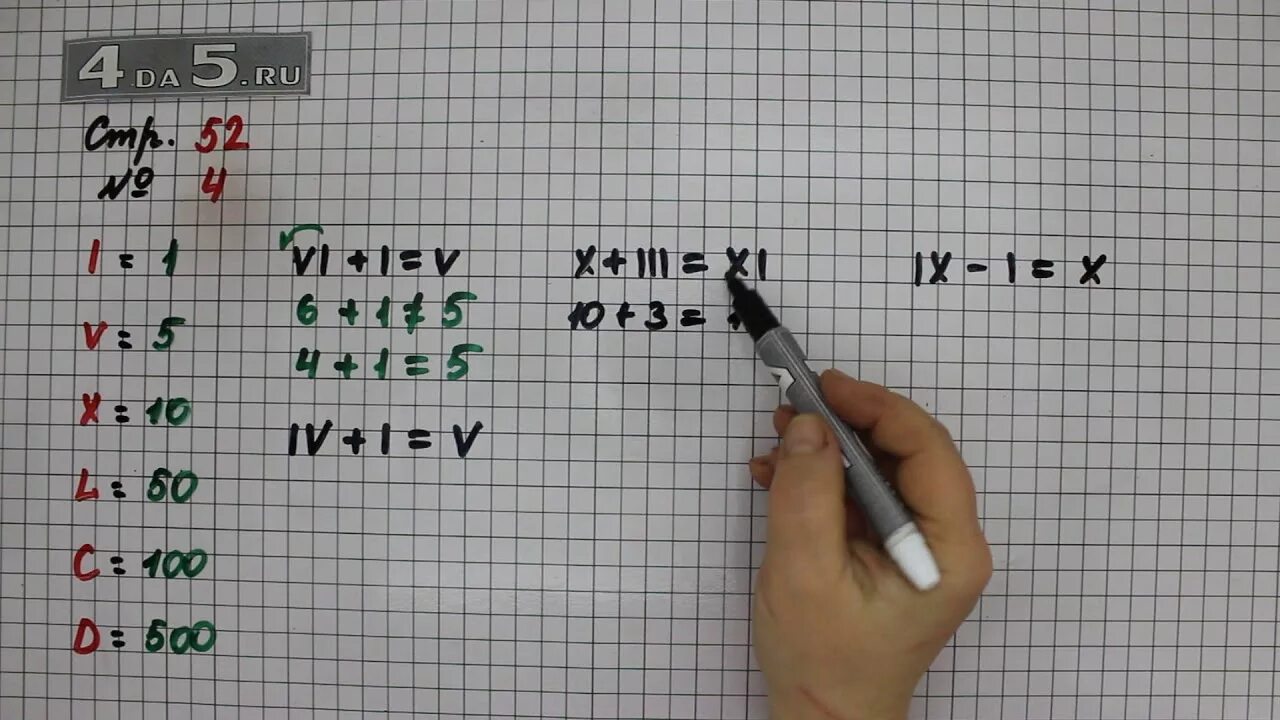 4DA5.RU
Стр. 52
№ 4
I = 1
V = 5
X = 10
L = 50
C = 100
D = 500
VI + I = V
6 + 1 ≠ 5
4 + 1 = 5
IV + I = V
X + III = XI
10 + 3 =
IX - I = X